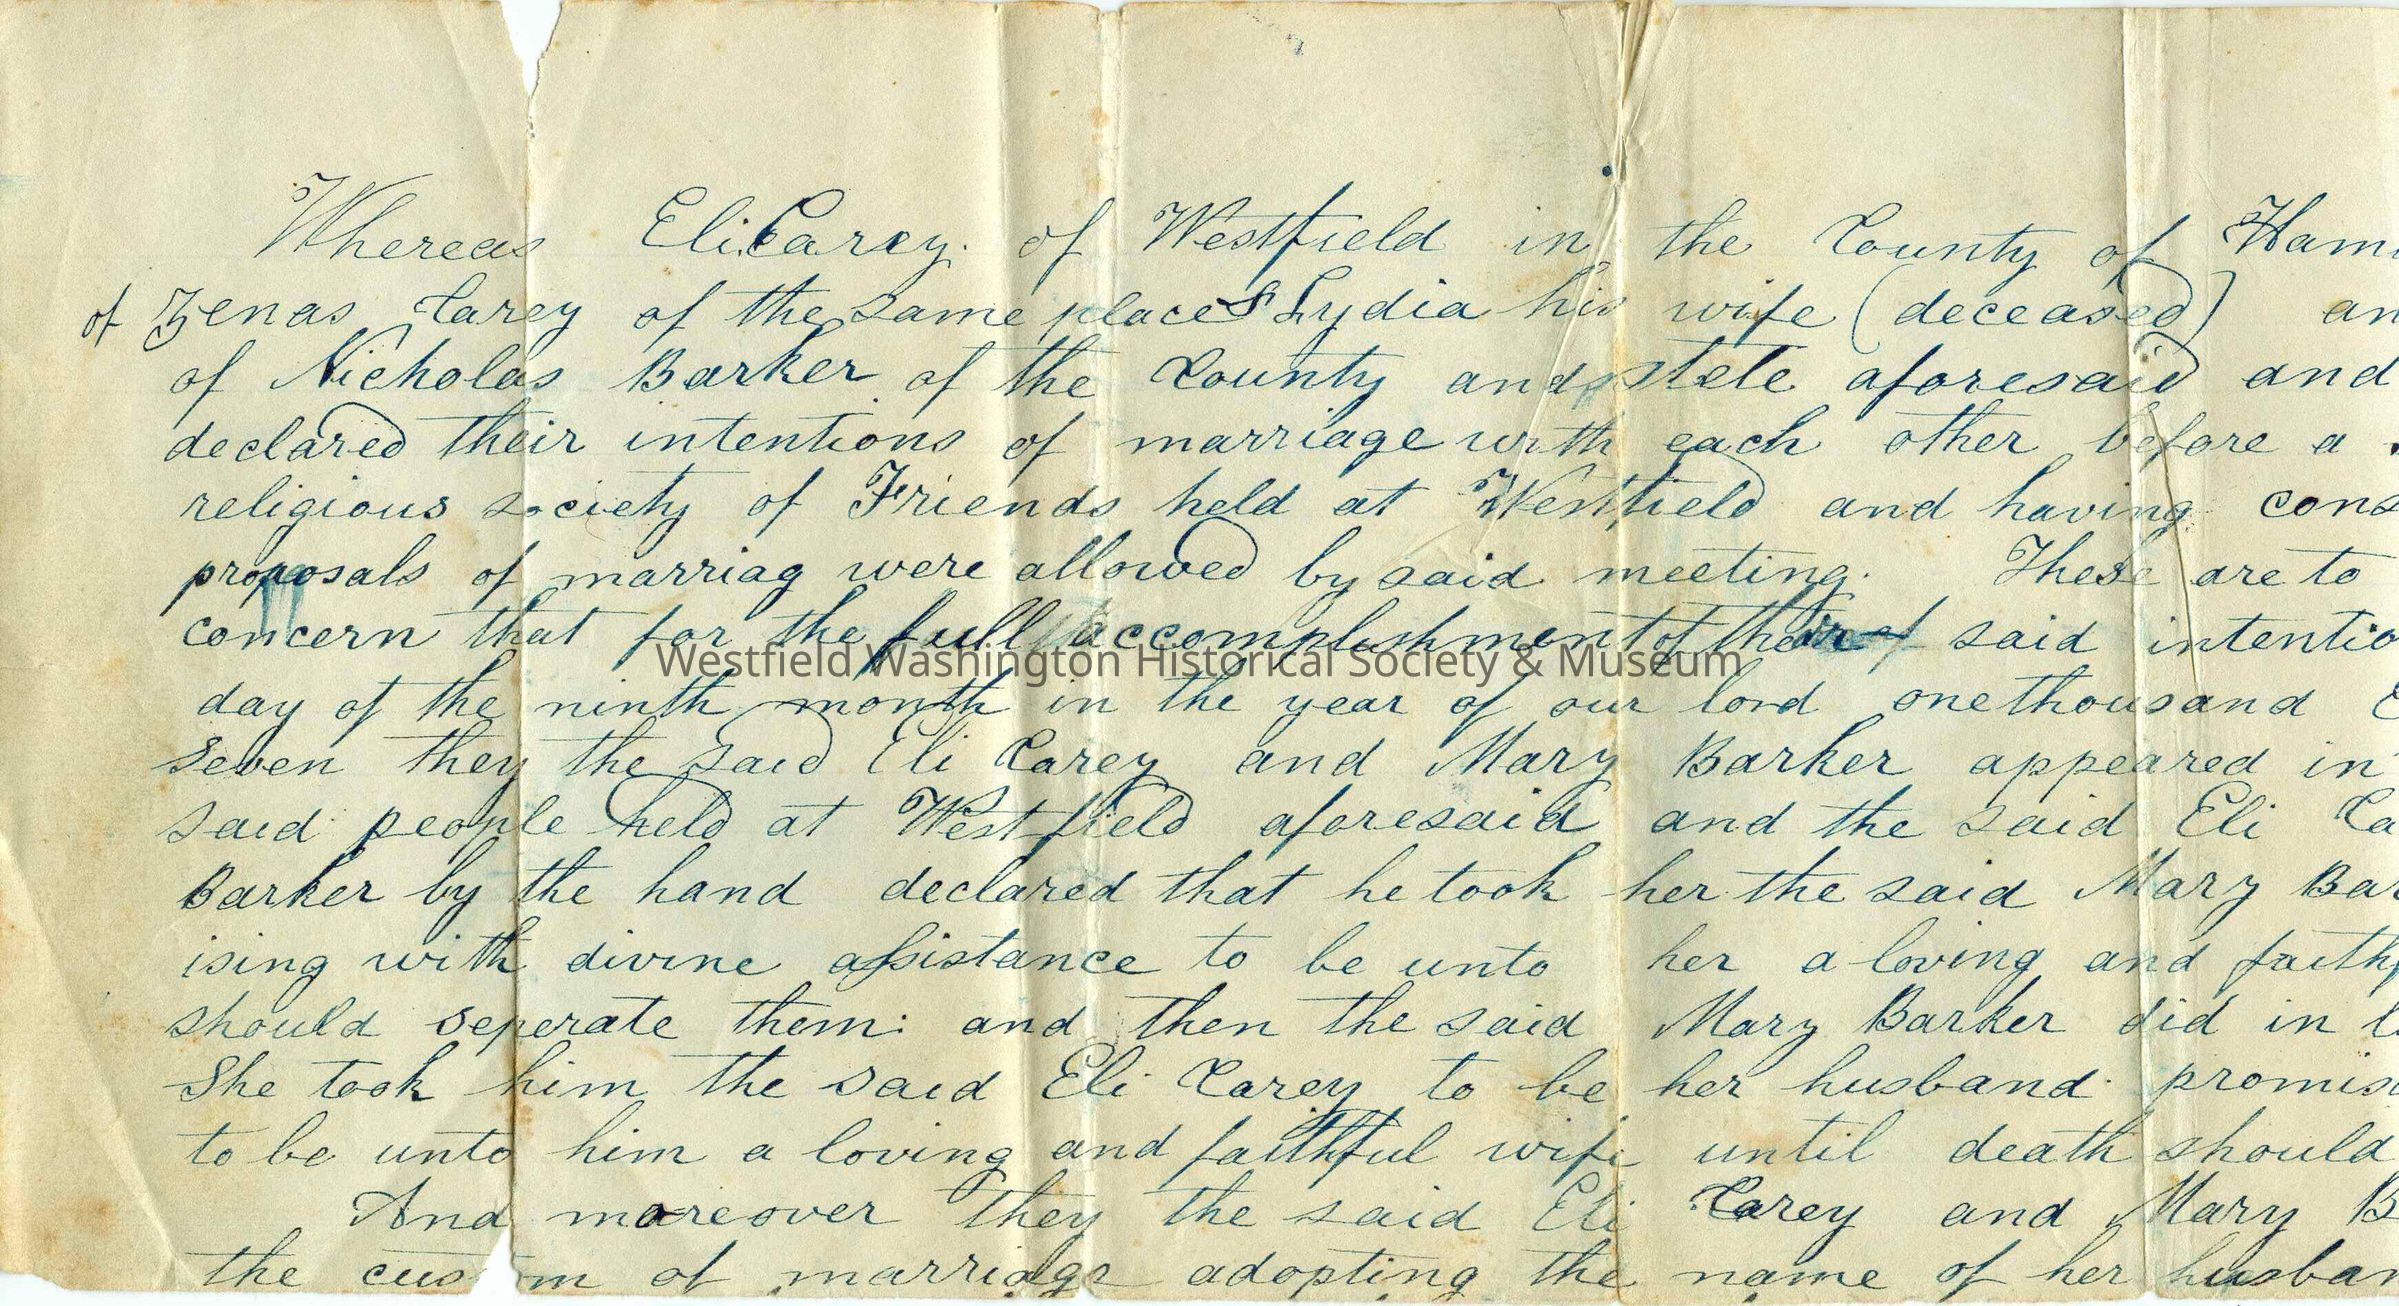 Whereas Eli Carey. of Westfield in the County of Ham
of Zenas Carey of the same place & Lydia his wife (deceased) an
of Nicholas Barker of the County and state aforesaid and
declared their intentions of marriage with each other before a
religious society of Friends held at Westfield and having cons
proposals of marriag were allowed by said meeting. These are to
concern that for the full accomplishment of their said intentio
Westfield Washington Historical Society & Museum
day of the ninth month in the year of our lord one thousand
seven they the said Eli Carey and Mary Barker appeared in
said people held at Westfield aforesaid and the said Eli Ca
Barker by the hand declared that he took her the said Mary Bar
ising with divine assistance to be unto her a loving and faithf
should seperate them: and then the said Mary Barker did in l
She took him the said Eli Carey to be her husband. promis
to be unto him a loving and faithful wife until death should
And moreover they the said Eli Carey and Mary B
the custom of marriage adopting the name of her husban